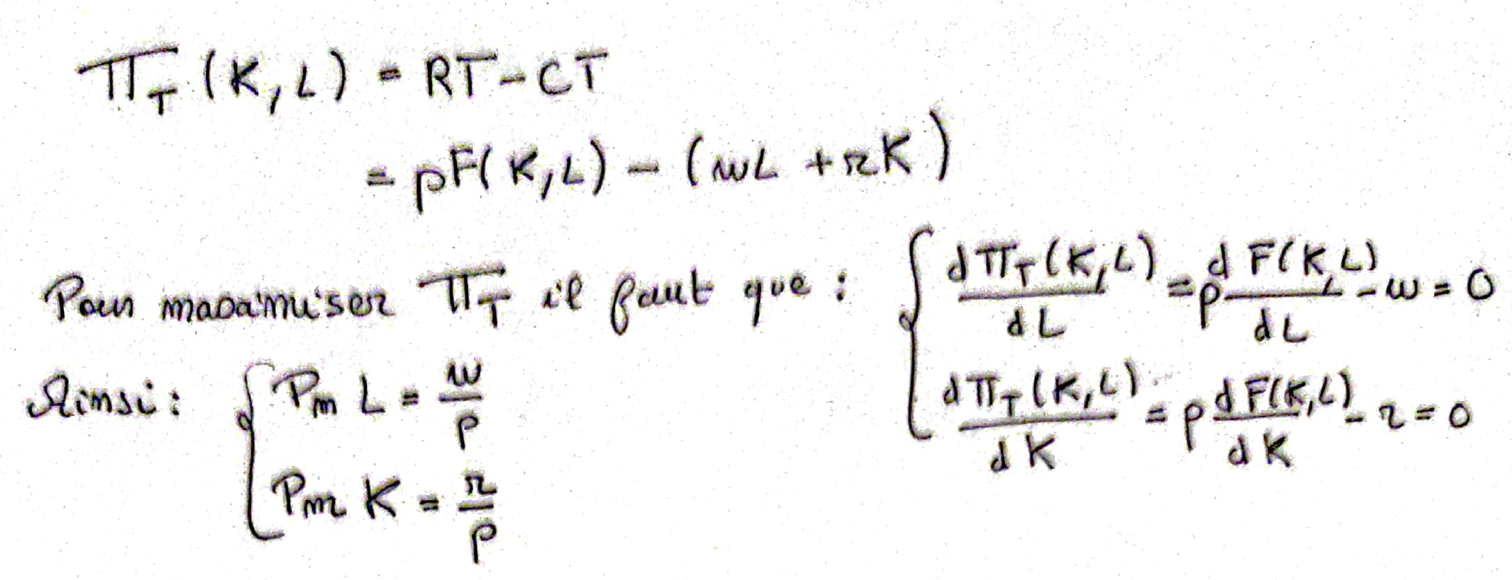 Π_T (K, L) = RT - CT
= pF(K, L) - (wL + rK)
Pour maximiser Π_T il faut que : { dΠ_T(K, L)/dL = p dF(K, L)/dL - w = 0
dΠ_T(K, L)/dK = p dF(K, L)/dK - r = 0
Ainsi : { Pm L = w/p
Pm K = r/p